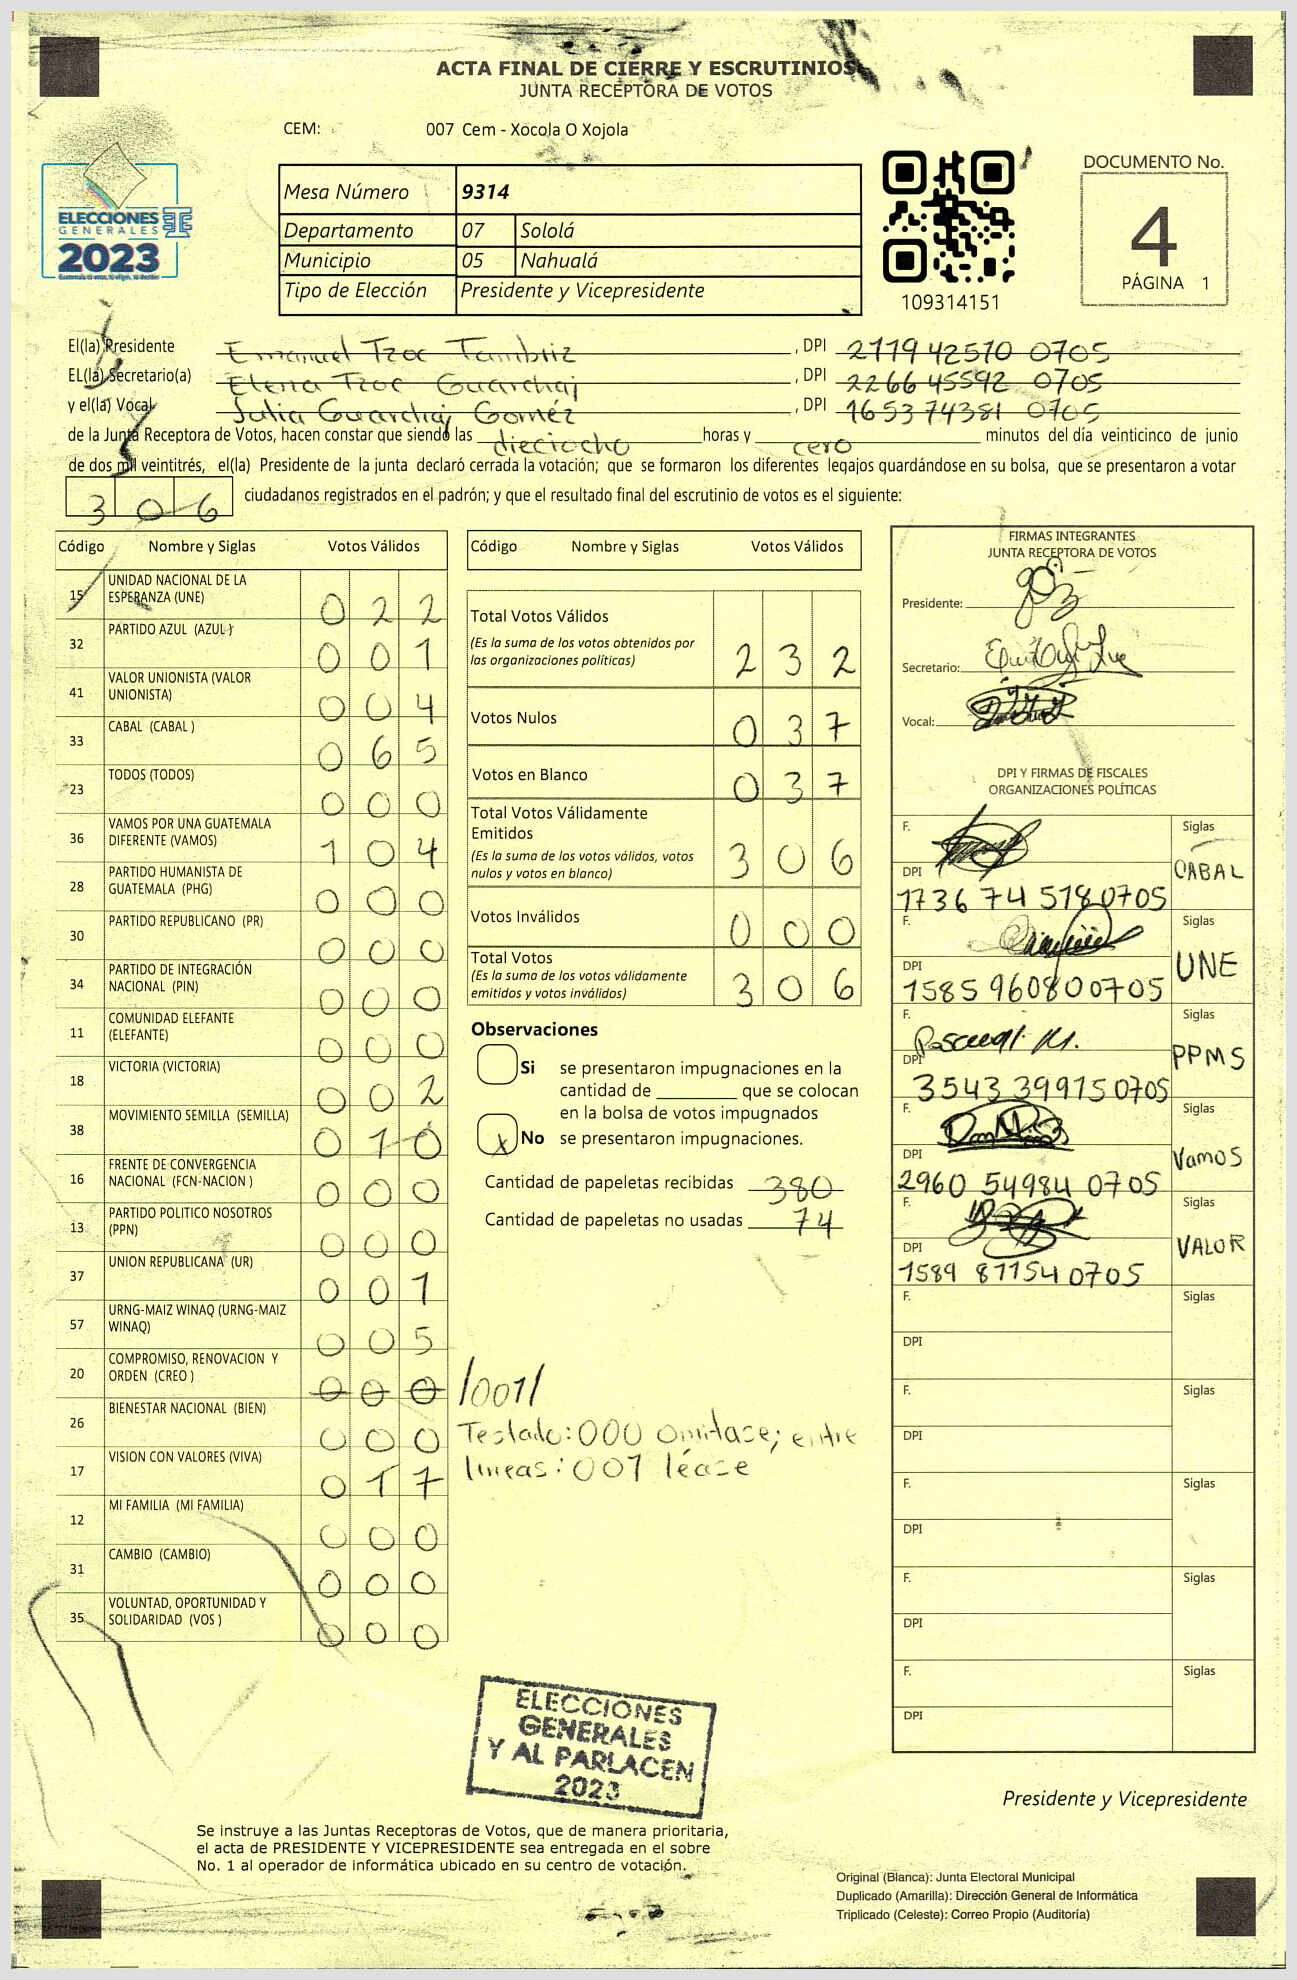 ACTA FINAL DE CIERRE Y ESCRUTINIOS
JUNTA RECEPTORA DE VOTOS
CEM: 007 Cem - Xocola O Xojola
ELECCIONES
GENERALES
2023
Mesa Número 9314
Departamento 07 Sololá
Municipio 05 Nahualá
Tipo de Elección Presidente y Vicepresidente
109314151
DOCUMENTO No.
4
PÁGINA 1
El(la) Presidente Emanuel Tzoc Tambriz, DPI 2779 42570 0705
EL(la) Secretario(a) Elena Tzoc Guarchaj, DPI 2266 45592 0705
y el(la) Vocal Julia Guarchaj Goméz, DPI 1653 74381 0705
de la Junta Receptora de Votos, hacen constar que siendo las dieciocho horas y cero minutos del día veinticinco de junio
de dos mil veintitrés, el(la) Presidente de la junta declaró cerrada la votación; que se formaron los diferentes legajos guardándose en su bolsa, que se presentaron a votar
306 ciudadanos registrados en el padrón; y que el resultado final del escrutinio de votos es el siguiente:
Código Nombre y Siglas Votos Válidos
15 UNIDAD NACIONAL DE LA ESPERANZA (UNE) 022
32 PARTIDO AZUL (AZUL) 001
41 VALOR UNIONISTA (VALOR UNIONISTA) 004
33 CABAL (CABAL ) 065
23 TODOS (TODOS) 000
36 VAMOS POR UNA GUATEMALA DIFERENTE (VAMOS) 104
28 PARTIDO HUMANISTA DE GUATEMALA (PHG) 000
30 PARTIDO REPUBLICANO (PR) 000
34 PARTIDO DE INTEGRACIÓN NACIONAL (PIN) 000
11 COMUNIDAD ELEFANTE (ELEFANTE) 000
18 VICTORIA (VICTORIA) 002
38 MOVIMIENTO SEMILLA (SEMILLA) 010
16 FRENTE DE CONVERGENCIA NACIONAL (FCN-NACION ) 000
13 PARTIDO POLITICO NOSOTROS (PPN) 000
37 UNION REPUBLICANA (UR) 001
57 URNG-MAIZ WINAQ (URNG-MAIZ WINAQ) 005
20 COMPROMISO, RENOVACION Y ORDEN (CREO ) 000 /001/
26 BIENESTAR NACIONAL (BIEN) 000
17 VISION CON VALORES (VIVA) 017
12 MI FAMILIA (MI FAMILIA) 000
31 CAMBIO (CAMBIO) 000
35 VOLUNTAD, OPORTUNIDAD Y SOLIDARIDAD (VOS ) 000
Testado: 000 omitase; entre
lineas: 001 léase
Código Nombre y Siglas Votos Válidos
Total Votos Válidos
(Es la suma de los votos obtenidos por
las organizaciones políticas) 232
Votos Nulos 037
Votos en Blanco 037
Total Votos Válidamente
Emitidos
(Es la suma de los votos válidos, votos
nulos y votos en blanco) 306
Votos Inválidos 000
Total Votos
(Es la suma de los votos válidamente
emitidos y votos inválidos) 306
Observaciones
Si se presentaron impugnaciones en la
cantidad de ________ que se colocan
en la bolsa de votos impugnados
x No se presentaron impugnaciones.
Cantidad de papeletas recibidas 380
Cantidad de papeletas no usadas 74
FIRMAS INTEGRANTES
JUNTA RECEPTORA DE VOTOS
Presidente:
Secretario:
Vocal:
DPI Y FIRMAS DE FISCALES
ORGANIZACIONES POLÍTICAS
F. Siglas
DPI CABAL
1736 74 518 0705
F. Siglas
DPI UNE
1585 96080 0705
F. Pascual M. Siglas
DPI PPMS
3543 39915 0705
F. Siglas
DPI Vamos
2960 54984 0705
F. Siglas
DPI VALOR
1589 87154 0705
F. Siglas
DPI
F. Siglas
DPI
F. Siglas
DPI
F. Siglas
DPI
F. Siglas
DPI
ELECCIONES
GENERALES
Y AL PARLACEN
2023
Presidente y Vicepresidente
Se instruye a las Juntas Receptoras de Votos, que de manera prioritaria,
el acta de PRESIDENTE Y VICEPRESIDENTE sea entregada en el sobre
No. 1 al operador de informática ubicado en su centro de votación.
Original (Blanca): Junta Electoral Municipal
Duplicado (Amarilla): Dirección General de Informática
Triplicado (Celeste): Correo Propio (Auditoría)